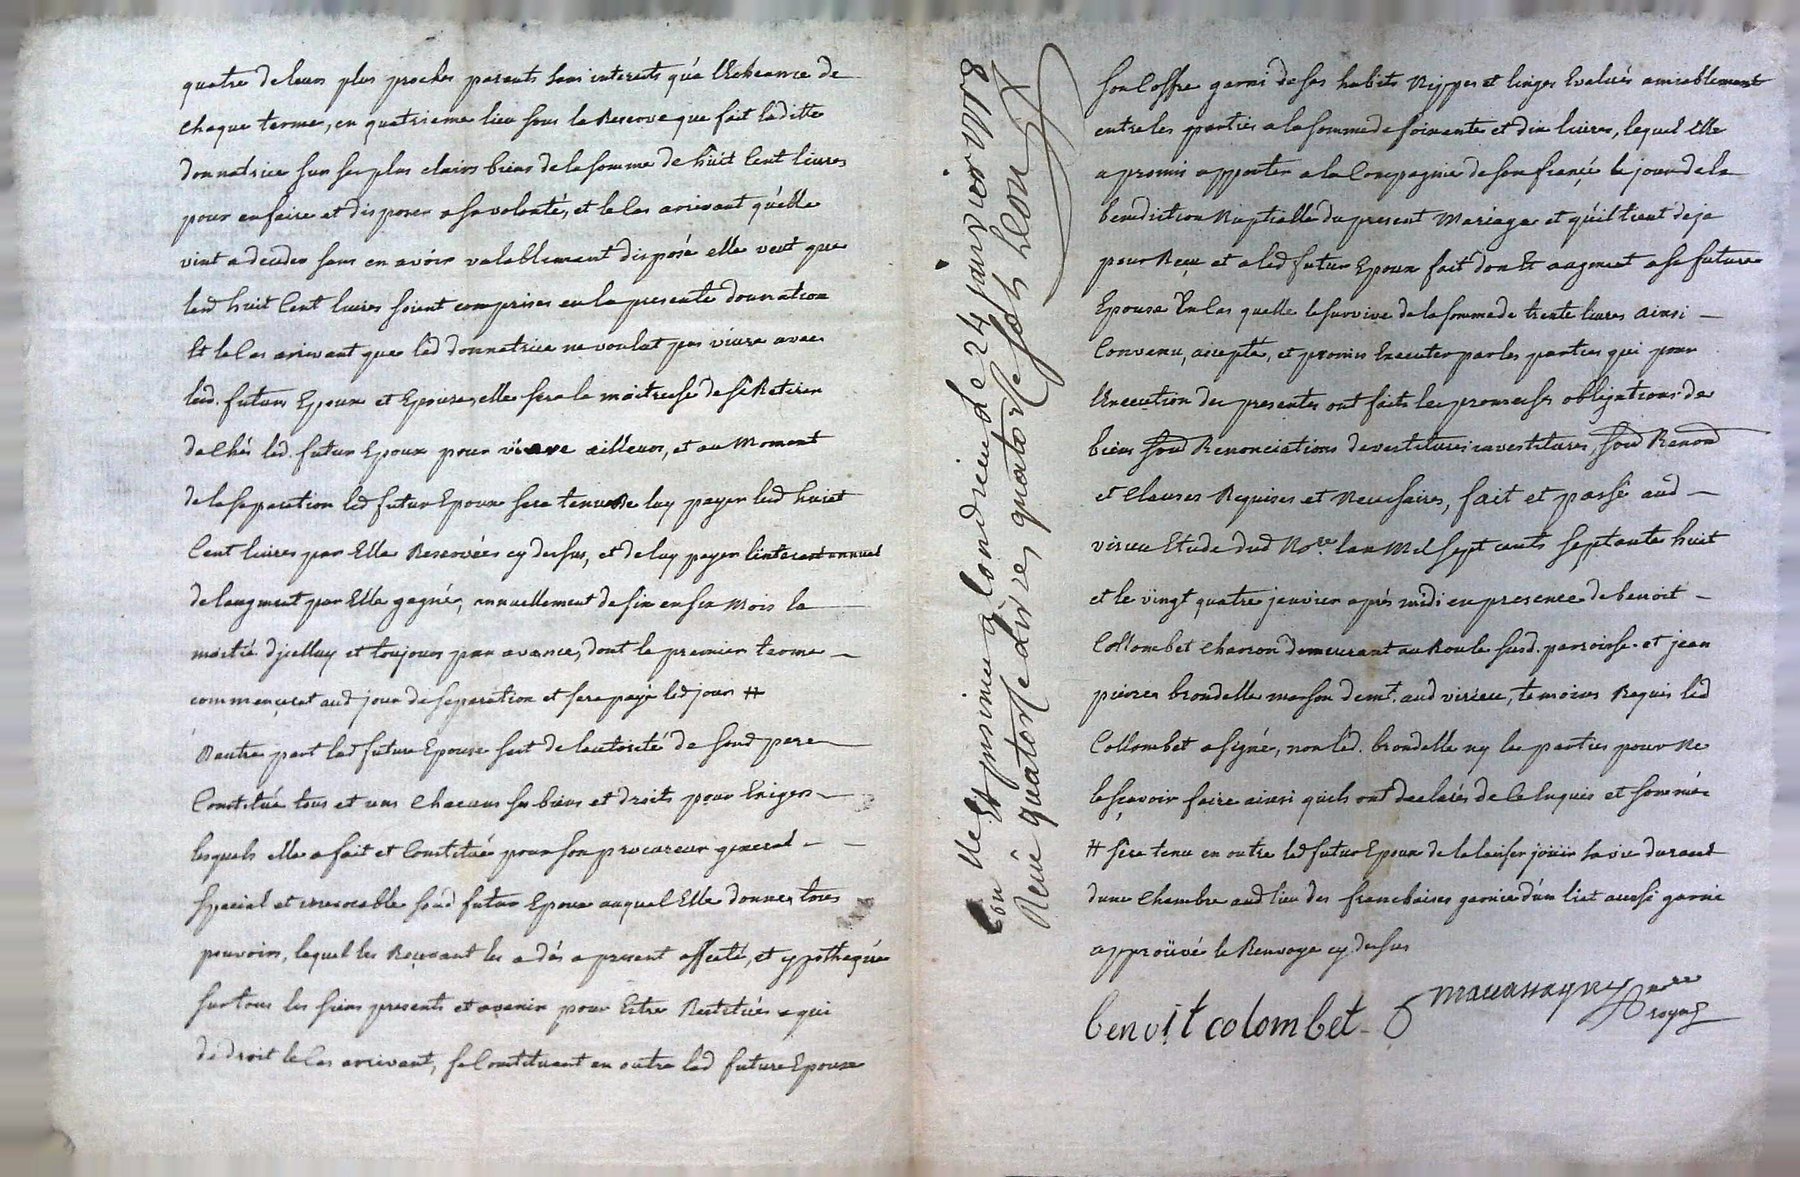 quatre de leurs plus proches parents sans interests qu'a l'Echeance de
chaque terme, en quatrieme lieu sous la Reserve que fait laditte
donnatrice sur ses plus clairs biens de la somme de huit Cent livres
pour en faire et disposer a sa volonté, et le Cas arrivant qu'elle
vint a deceder sans en avoir valablement disposé elle veut que
lesd huit Cent livres soient comprises en la presente donnation
Et le Cas arrivant que lad donnatrice ne voulut pas vivre avec
lesd. futurs Epoux et Epouse, elle sera la maitresse de se Retirer
de Chés led. futur Epoux pour vivre ailleurs, et au Moment
de la separation led futur Epoux sera tenu De luy payer lesd huict
Cent livres par Elle Reservées cy dessus, et de luy payer l'interest annuel
de laugment par Elle gagné, annuellement de six en six Mois la
moitié d'icelluy et toujours par avance, dont le premier terme —
commencerat aud jour de separation et sera payé led jour #
D'autre part lad future Epouse sest de lautorité de sond pere —
Constitué tous et uns Chacuns ses biens et droits pour Exiger —
lesquels elle a fait et Constitué pour son procureur general — —
special et irrevocable sond futur Epoux auquel Elle donne tous
pouvoirs, lequel les Recevant les a dés a present affecté, et ypothequé
sur tous les siens presents et avenir pour Estre Restitués a qui
de droit le Cas arrivant, se Constituant en outre lad future Epouse
Con lle Et insinué a Condrieu le 24 janvier 1778
Reçu quatorze livres quatorze sols
son Coffre garni de ses habits Nippes et linges Evalués amiablement
entre les parties a la somme de soixante et dix livres, lequel Elle
a promis apporter a la Compagnie de son fiancé le jour de la
benediction Nuptialle du present Mariage et qu'il tient deja
pour Reçu et a led futur Epoux fait don Et augment a sa future
Epouse En Cas quelle le survive de la somme de trente livres ainsi —
Convenu, accepté, et promis Executer par les parties qui pour
l'Execution des presentes ont faits les promesses obligations de
biens soud Renonciations devestitures investitures, soud Renond
et Clauses Requises et Necessaires, fait et passé aud —
virieu Etude dud No.re lan Mil sept cents septante huit
et le vingt quatre janvier aprés midi en presence de benoit —
Collombet Charron demeurant au Roule susd. parroisse et jean
pierre brondelle masson demt. aud virieu, temoins Requis led
Collombet a signé, non led. brondelle ny les parties pour Ne
le sçavoir faire ainsi quils ont declarés de Ce Enquis et sommés
# sera tenu en outre led futur Epoux de la laisser jouir sa vie durant
dune Chambre aud lieu des francbaises garnie d'un lict aussi garni
approuvé le Renvoye cy dessus
benoit colombet
royal